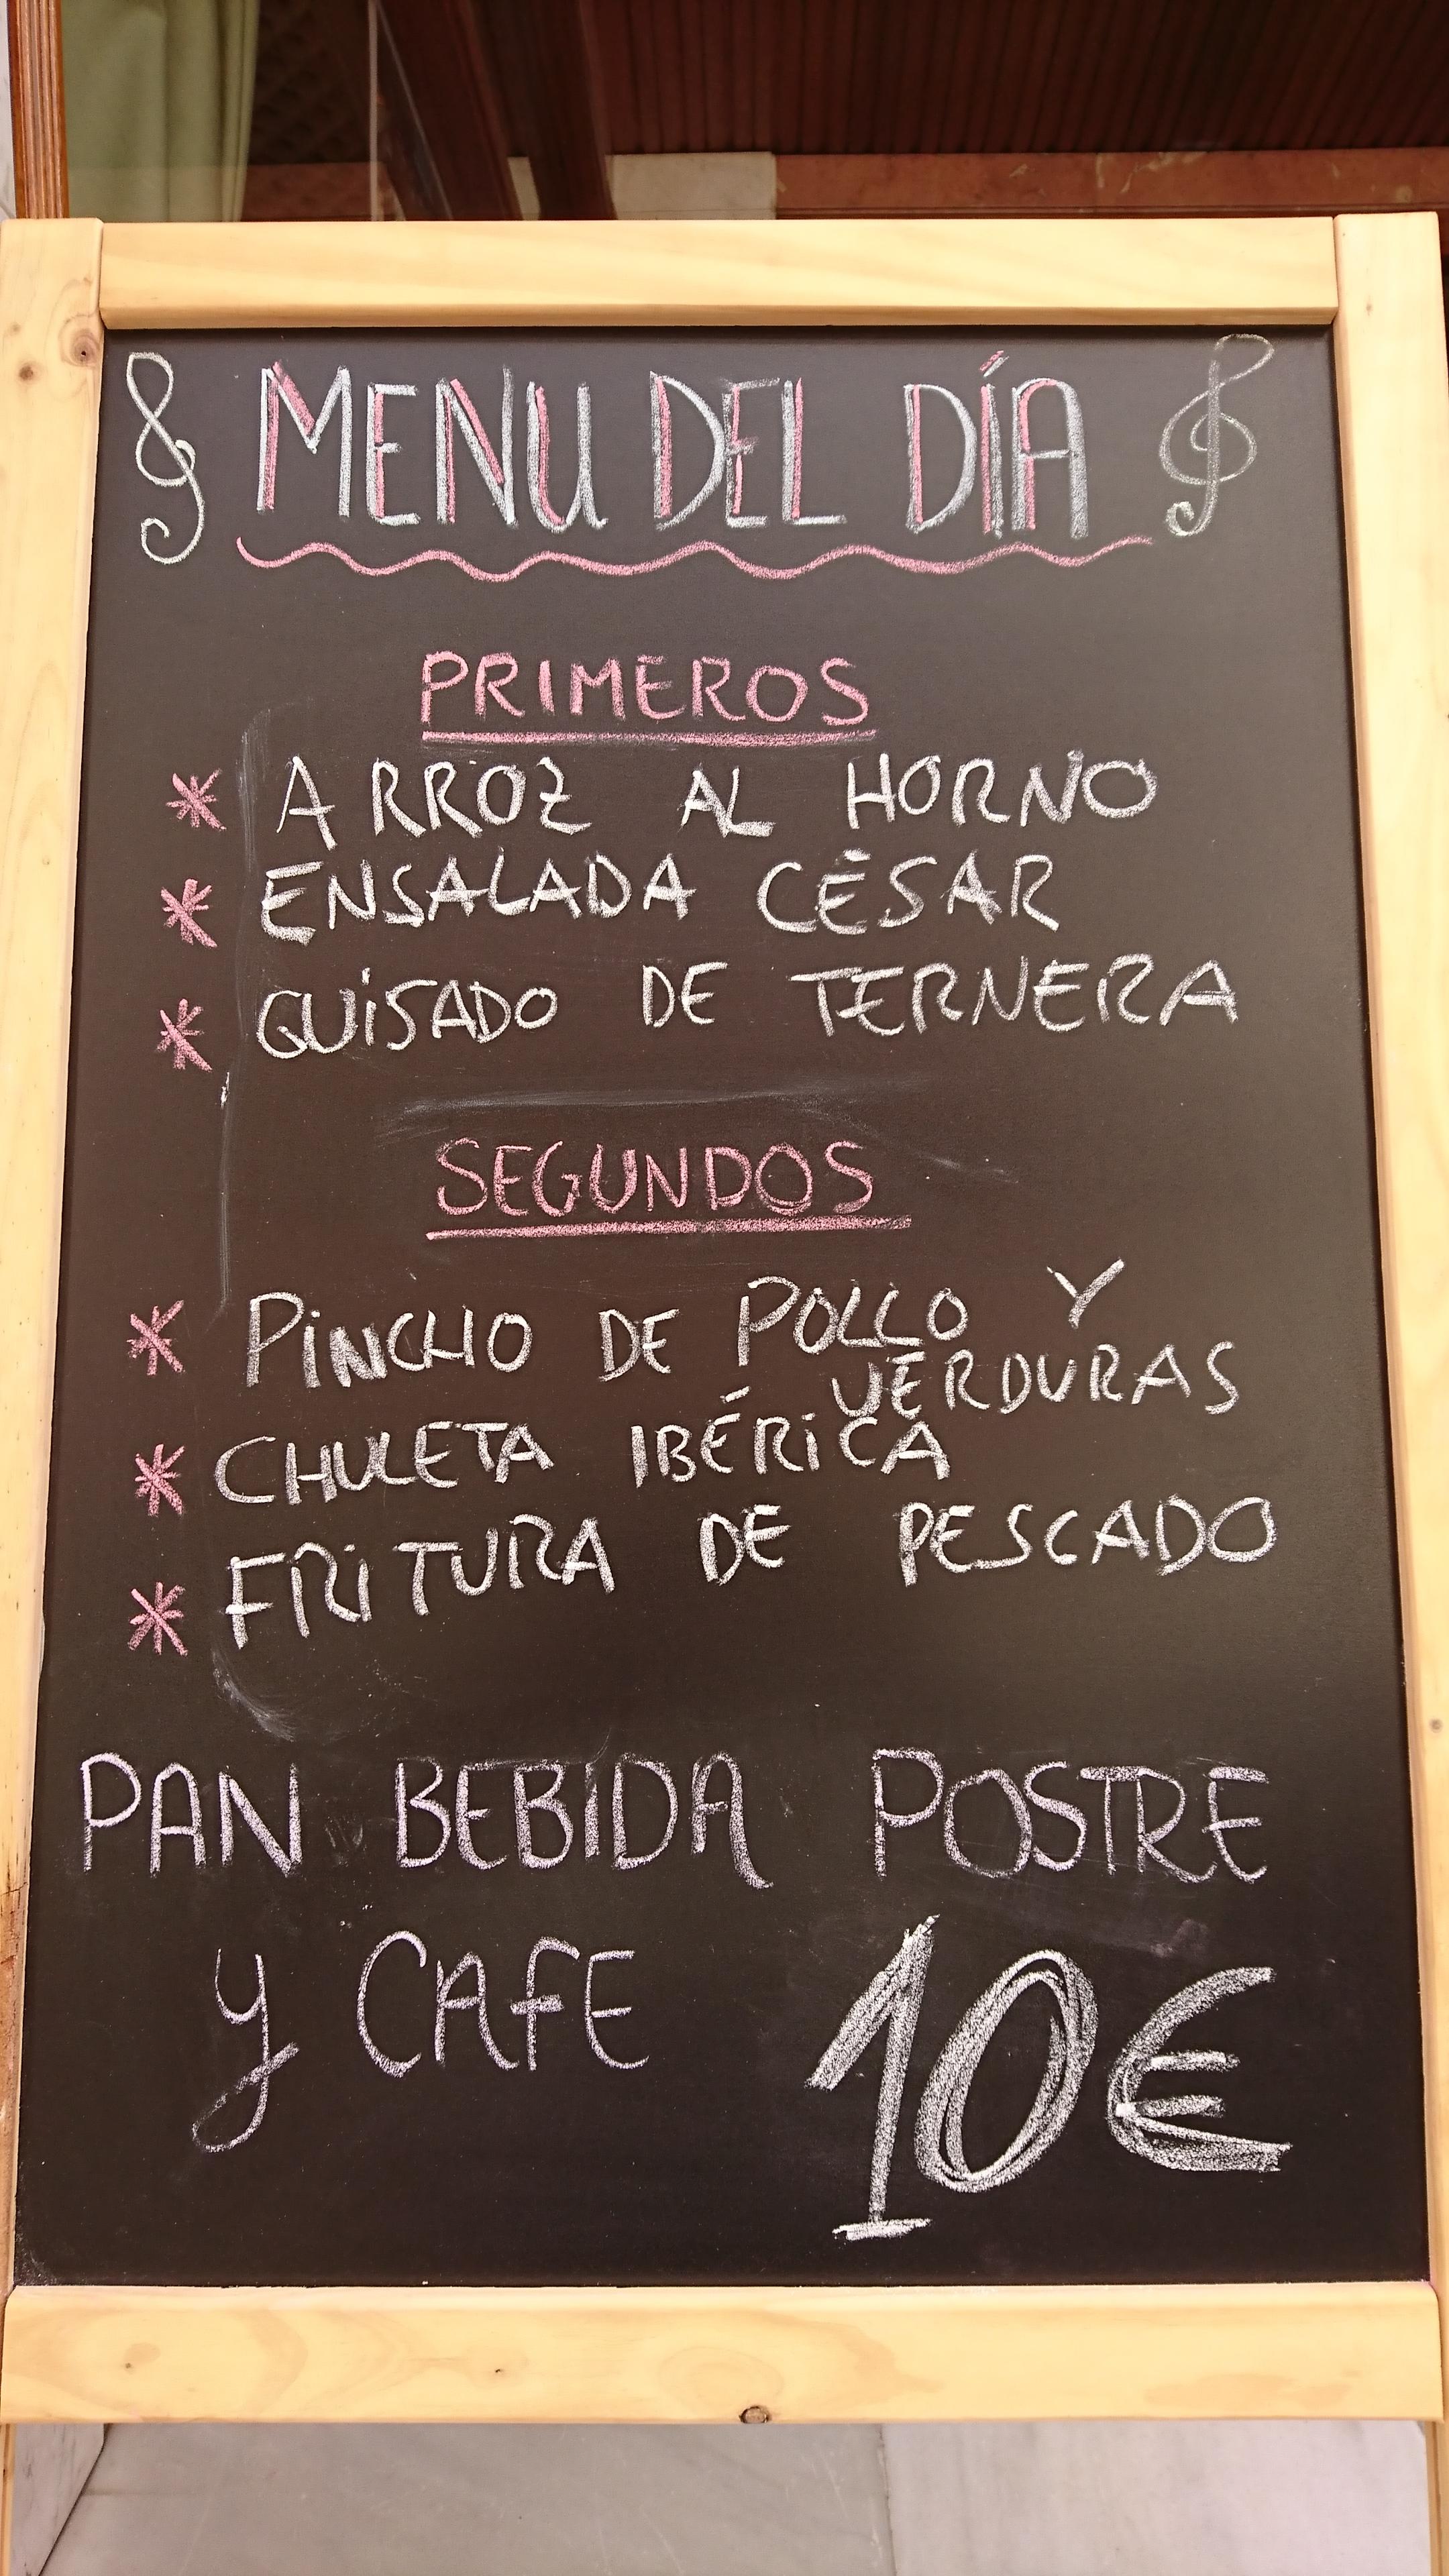 MENU DEL DÍA
PRIMEROS
* ARROZ AL HORNO
* ENSALADA CÉSAR
* GUISADO DE TERNERA
SEGUNDOS
* PINCHO DE POLLO Y
VERDURAS
* CHULETA IBÉRICA
* FRITURA DE PESCADO
PAN BEBIDA POSTRE
Y CAFE 10€